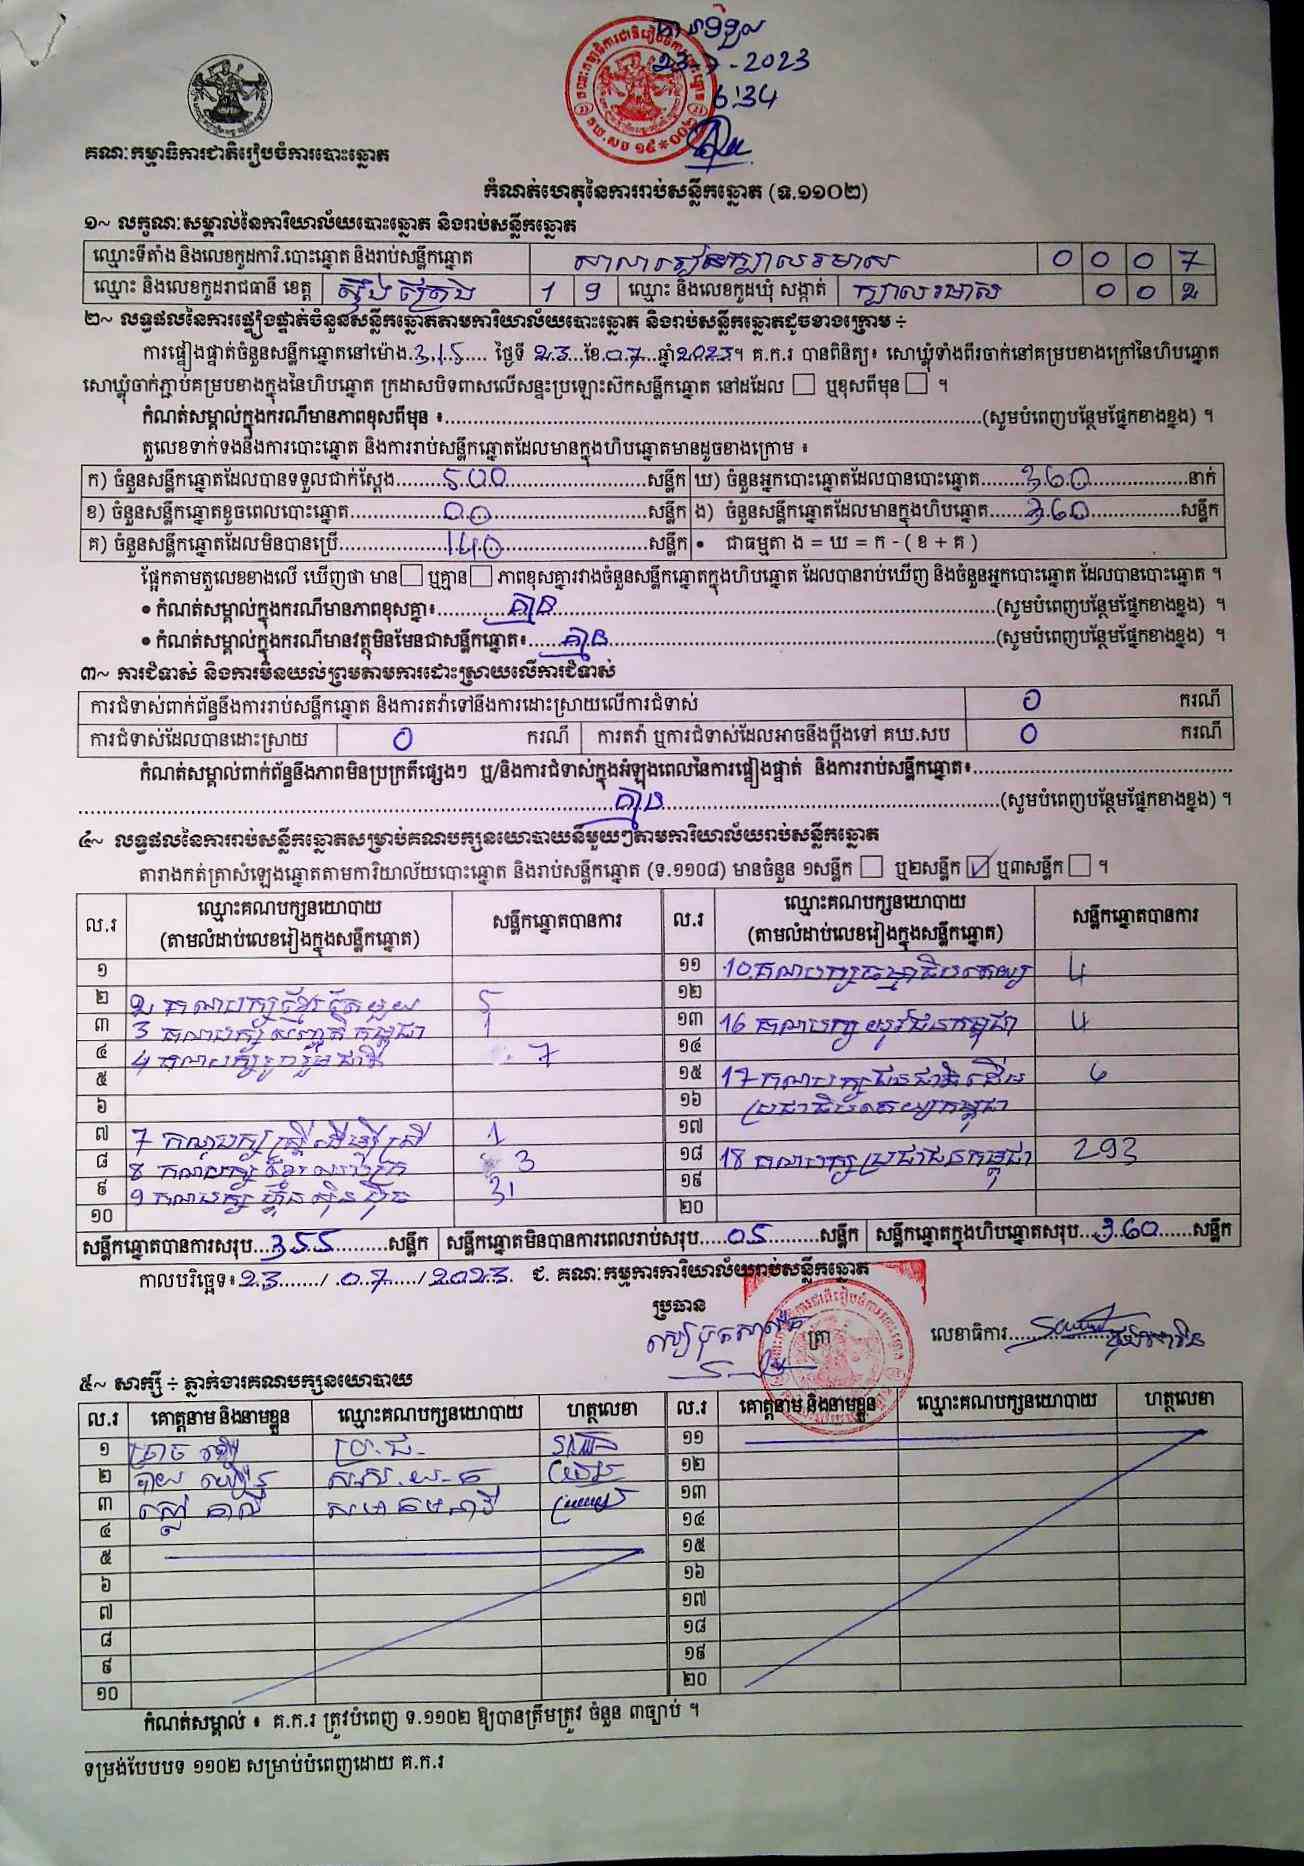 23-7-2023
6:34
គណៈកម្មាធិការជាតិរៀបចំការបោះឆ្នោត
កំណត់ហេតុនៃការរាប់សន្លឹកឆ្នោត (ទ.១១០២)
១~ លក្ខណៈសម្គាល់នៃការិយាល័យបោះឆ្នោត និងរាប់សន្លឹកឆ្នោត
ឈ្មោះទីតាំង និងលេខកូដការិ.បោះឆ្នោត និងរាប់សន្លឹកឆ្នោត សាលារៀនក្បាលរមាស 0 0 0 7
ឈ្មោះ និងលេខកូដរាជធានី ខេត្ត ស្ទឹងត្រែង 1 9 ឈ្មោះ និងលេខកូដឃុំ សង្កាត់ ក្បាលរមាស 0 0 2
២~ លទ្ធផលនៃការផ្ទៀងផ្ទាត់ចំនួនសន្លឹកឆ្នោតតាមការិយាល័យបោះឆ្នោត និងរាប់សន្លឹកឆ្នោតដូចខាងក្រោម ÷
ការផ្ទៀងផ្ទាត់ចំនួនសន្លឹកឆ្នោតនៅម៉ោង.3.15.... ថ្ងៃទី 23 ខែ.07..ឆ្នាំ2023។ គ.ក.រ បានពិនិត្យ៖ សោឃ្លុំទាំងពីរចាក់នៅគម្របខាងក្រៅនៃហិបឆ្នោត
សោឃ្លុំចាក់ភ្ជាប់គម្របខាងក្នុងនៃហិបឆ្នោត ក្រដាសបិទពាសលើសន្ទះប្រឡោះស៊កសន្លឹកឆ្នោត នៅដដែល □ ឬខុសពីមុន □ ។
កំណត់សម្គាល់ក្នុងករណីមានភាពខុសពីមុន ៖........(សូមបំពេញបន្ថែមផ្នែកខាងខ្នង) ។
តួលេខទាក់ទងនឹងការបោះឆ្នោត និងការរាប់សន្លឹកឆ្នោតដែលមានក្នុងហិបឆ្នោតមានដូចខាងក្រោម ៖
ក) ចំនួនសន្លឹកឆ្នោតដែលបានទទួលជាក់ស្តែង........500........សន្លឹក ឃ) ចំនួនអ្នកបោះឆ្នោតដែលបានបោះឆ្នោត........360........នាក់
ខ) ចំនួនសន្លឹកឆ្នោតខូចពេលបោះឆ្នោត........00........សន្លឹក ង) ចំនួនសន្លឹកឆ្នោតដែលមានក្នុងហិបឆ្នោត........360........សន្លឹក
គ) ចំនួនសន្លឹកឆ្នោតដែលមិនបានប្រើ........140........សន្លឹក • ជាធម្មតា ង = ឃ = ក - ( ខ + គ )
ផ្អែកតាមតួលេខខាងលើ ឃើញថា មាន□ ឬគ្មាន□ ភាពខុសគ្នារវាងចំនួនសន្លឹកឆ្នោតក្នុងហិបឆ្នោត ដែលបានរាប់ឃើញ និងចំនួនអ្នកបោះឆ្នោត ដែលបានបោះឆ្នោត ។
• កំណត់សម្គាល់ក្នុងករណីមានភាពខុសគ្នា៖........គ្មាន........(សូមបំពេញបន្ថែមផ្នែកខាងខ្នង) ។
• កំណត់សម្គាល់ក្នុងករណីមានវត្ថុមិនមែនជាសន្លឹកឆ្នោត៖........គ្មាន........(សូមបំពេញបន្ថែមផ្នែកខាងខ្នង) ។
៣~ ការជំទាស់ និងការមិនយល់ព្រមតាមការដោះស្រាយលើការជំទាស់
ការជំទាស់ពាក់ព័ន្ធនឹងការរាប់សន្លឹកឆ្នោត និងការតវ៉ាទៅនឹងការដោះស្រាយលើការជំទាស់ 0 ករណី
ការជំទាស់ដែលបានដោះស្រាយ 0 ករណី ការតវ៉ា ឬការជំទាស់ដែលអាចនឹងប្តឹងទៅ គឃ.សប 0 ករណី
កំណត់សម្គាល់ពាក់ព័ន្ធនឹងភាពមិនប្រក្រតីផ្សេងៗ ឬ/និងការជំទាស់ក្នុងអំឡុងពេលនៃការផ្ទៀងផ្ទាត់ និងការរាប់សន្លឹកឆ្នោត៖........
........គ្មាន........(សូមបំពេញបន្ថែមផ្នែកខាងខ្នង) ។
៤~ លទ្ធផលនៃការរាប់សន្លឹកឆ្នោតសម្រាប់គណបក្សនយោបាយនីមួយៗតាមការិយាល័យរាប់សន្លឹកឆ្នោត
តារាងកត់ត្រាសំឡេងឆ្នោតតាមការិយាល័យបោះឆ្នោត និងរាប់សន្លឹកឆ្នោត (ទ.១១០៨) មានចំនួន ១សន្លឹក □ ឬ២សន្លឹក ☑ ឬ៣សន្លឹក □ ។
ល.រ ឈ្មោះគណបក្សនយោបាយ (តាមលំដាប់លេខរៀងក្នុងសន្លឹកឆ្នោត) សន្លឹកឆ្នោតបានការ ល.រ ឈ្មោះគណបក្សនយោបាយ (តាមលំដាប់លេខរៀងក្នុងសន្លឹកឆ្នោត) សន្លឹកឆ្នោតបានការ
១ ១១ 10.គណបក្សធម្មាធិបតេយ្យ 4
២ 2 គណបក្សខ្មែរតែមួយ 5 ១២
៣ 3 គណបក្ស សញ្ជាតិកម្ពុជា 1 ១៣ 16 គណបក្ស យុវជនកម្ពុជា 4
៤ 4 គណបក្សរួបរួមជាតិ 7 ១៤
៥ ១៥ 17 គណបក្សជនជាតិដើម 6
៦ ១៦ ប្រជាធិបតេយ្យកម្ពុជា
៧ 7 គណបក្សស្ត្រីដើម្បីស្ត្រី 1 ១៧
៨ 8 គណបក្ស 3 ១៨ 18 គណបក្សប្រជាជនកម្ពុជា 293
៩ 9 គណបក្ស ហ្វ៊ុនស៊ិនប៉ិច 31 ១៩
១០ ២០
សន្លឹកឆ្នោតបានការសរុប...355........សន្លឹក សន្លឹកឆ្នោតមិនបានការពេលរាប់សរុប.....05........សន្លឹក សន្លឹកឆ្នោតក្នុងហិបឆ្នោតសរុប...360......សន្លឹក
កាលបរិច្ឆេទ៖23....../.07...../2023. ជ. គណៈកម្មការការិយាល័យរាប់សន្លឹកឆ្នោត
ប្រធាន
ត្រា លេខាធិការ........
៥~ សាក្សី ÷ ភ្នាក់ងារគណបក្សនយោបាយ
ល.រ គោត្តនាម និងនាមខ្លួន ឈ្មោះគណបក្សនយោបាយ ហត្ថលេខា ល.រ គោត្តនាម និងនាមខ្លួន ឈ្មោះគណបក្សនយោបាយ ហត្ថលេខា
១ ប្រ.ជ. ១១
២ ១២
៣ ១៣
៤ ១៤
៥ ១៥
៦ ១៦
៧ ១៧
៨ ១៨
៩ ១៩
១០ ២០
កំណត់សម្គាល់ ៖ គ.ក.រ ត្រូវបំពេញ ទ.១១០២ ឱ្យបានត្រឹមត្រូវ ចំនួន ៣ច្បាប់ ។
ទម្រង់បែបបទ ១១០២ សម្រាប់បំពេញដោយ គ.ក.រ